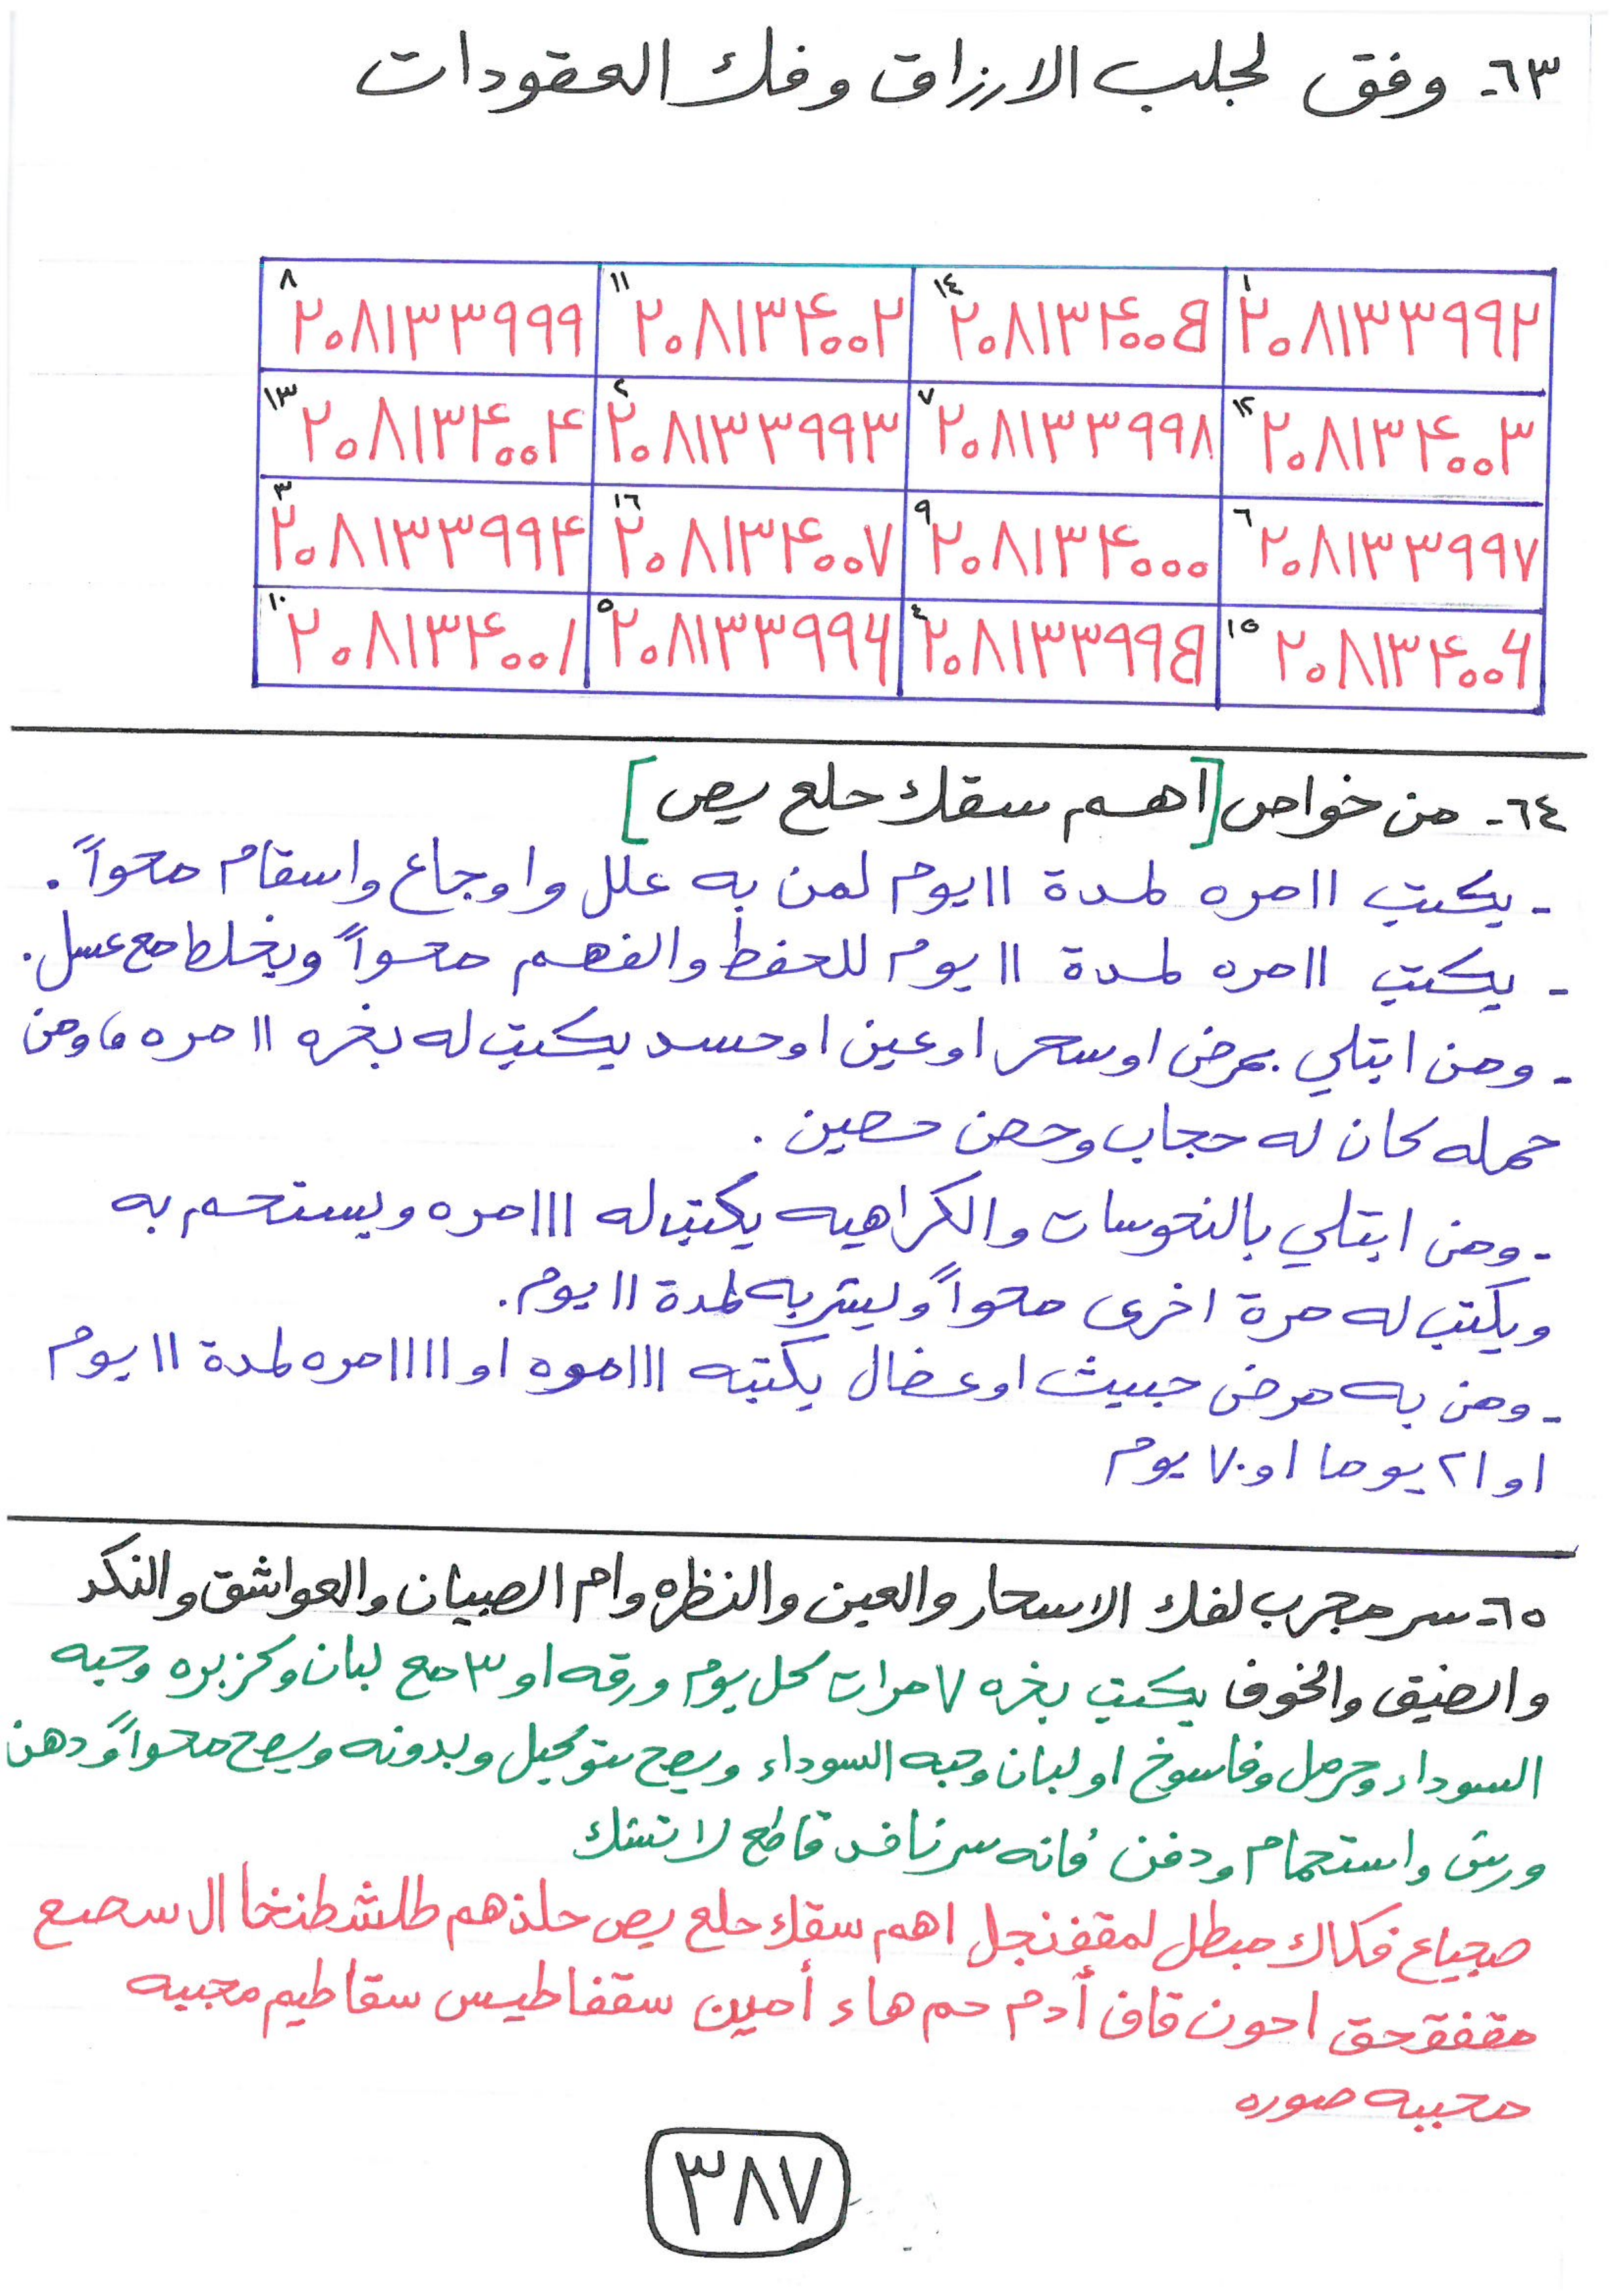 ٦٣- وفق لجلب الارزاق وفك العقودات
١ ٢٠٨١٣٣٩٩٢ ١٤ ٢٠٨١٣٤٠٠٥ ١١ ٢٠٨١٣٤٠٠٢ ٨ ٢٠٨١٣٣٩٩٩
١٢ ٢٠٨١٣٤٠٠٣ ٧ ٢٠٨١٣٣٩٩٨ ٢ ٢٠٨١٣٣٩٩٣ ١٣ ٢٠٨١٣٤٠٠٤
٦ ٢٠٨١٣٣٩٩٧ ٩ ٢٠٨١٣٤٠٠٠ ١٦ ٢٠٨١٣٤٠٠٧ ٣ ٢٠٨١٣٣٩٩٤
١٥ ٢٠٨١٣٤٠٠٦ ٤ ٢٠٨١٣٣٩٩٥ ٥ ٢٠٨١٣٣٩٩٦ ١٠ ٢٠٨١٣٤٠٠١
٦٤- من خواص [اهم سقك حلع يص]
- يكتب ١١ مره لمدة ١١ يوم لمن به علل واوجاع واسقام محواً.
- يكتب ١١ مره لمدة ١١ يوم للحفظ والفهم محواً ويخلط مع عسل.
- ومن ابتلي بمرض او سحر او عين او حسد يكتب له بخره ١١ مره، ومن
حمله كان له حجاب وحصن حصين.
- ومن ابتلي بالنحوسات والكراهيه يكتب له ١١١ مره ويستحم به
ويكتب له مرة اخرى محواً وليشربه لمدة ١١ يوم.
- ومن به مرض خبيث او عضال يكتبه ١١١ مره او ١١١١ مره لمدة ١١ يوم
او ٢١ يوما او ٧٠ يوم
٦٥- سر مجرب لفك الاسحار والعين والنظره وام الصبيان والعواشق والنكد
والضيق والخوف يكتب بخره ٧ مرات كل يوم ورقه او ٣ مع لبان وكزبره وحبه
السوداء وحرمل وفاسوخ او لبان وحبه السوداء ويصح بتوكيل وبدونه ويصح محواً ودهن
ورش واستحمام ودفن فانه سر نافد قاطع لا تشك
صجياع فكاك مبطل لمقفنجل اهم سقك حلع يص حلذهم طلشطنخا ال سصع
مقفقوحق احون قاف أدم حم هاء أمين سقفاطيس سقاطيم مجبيه
محببه صوره
٣٨٧